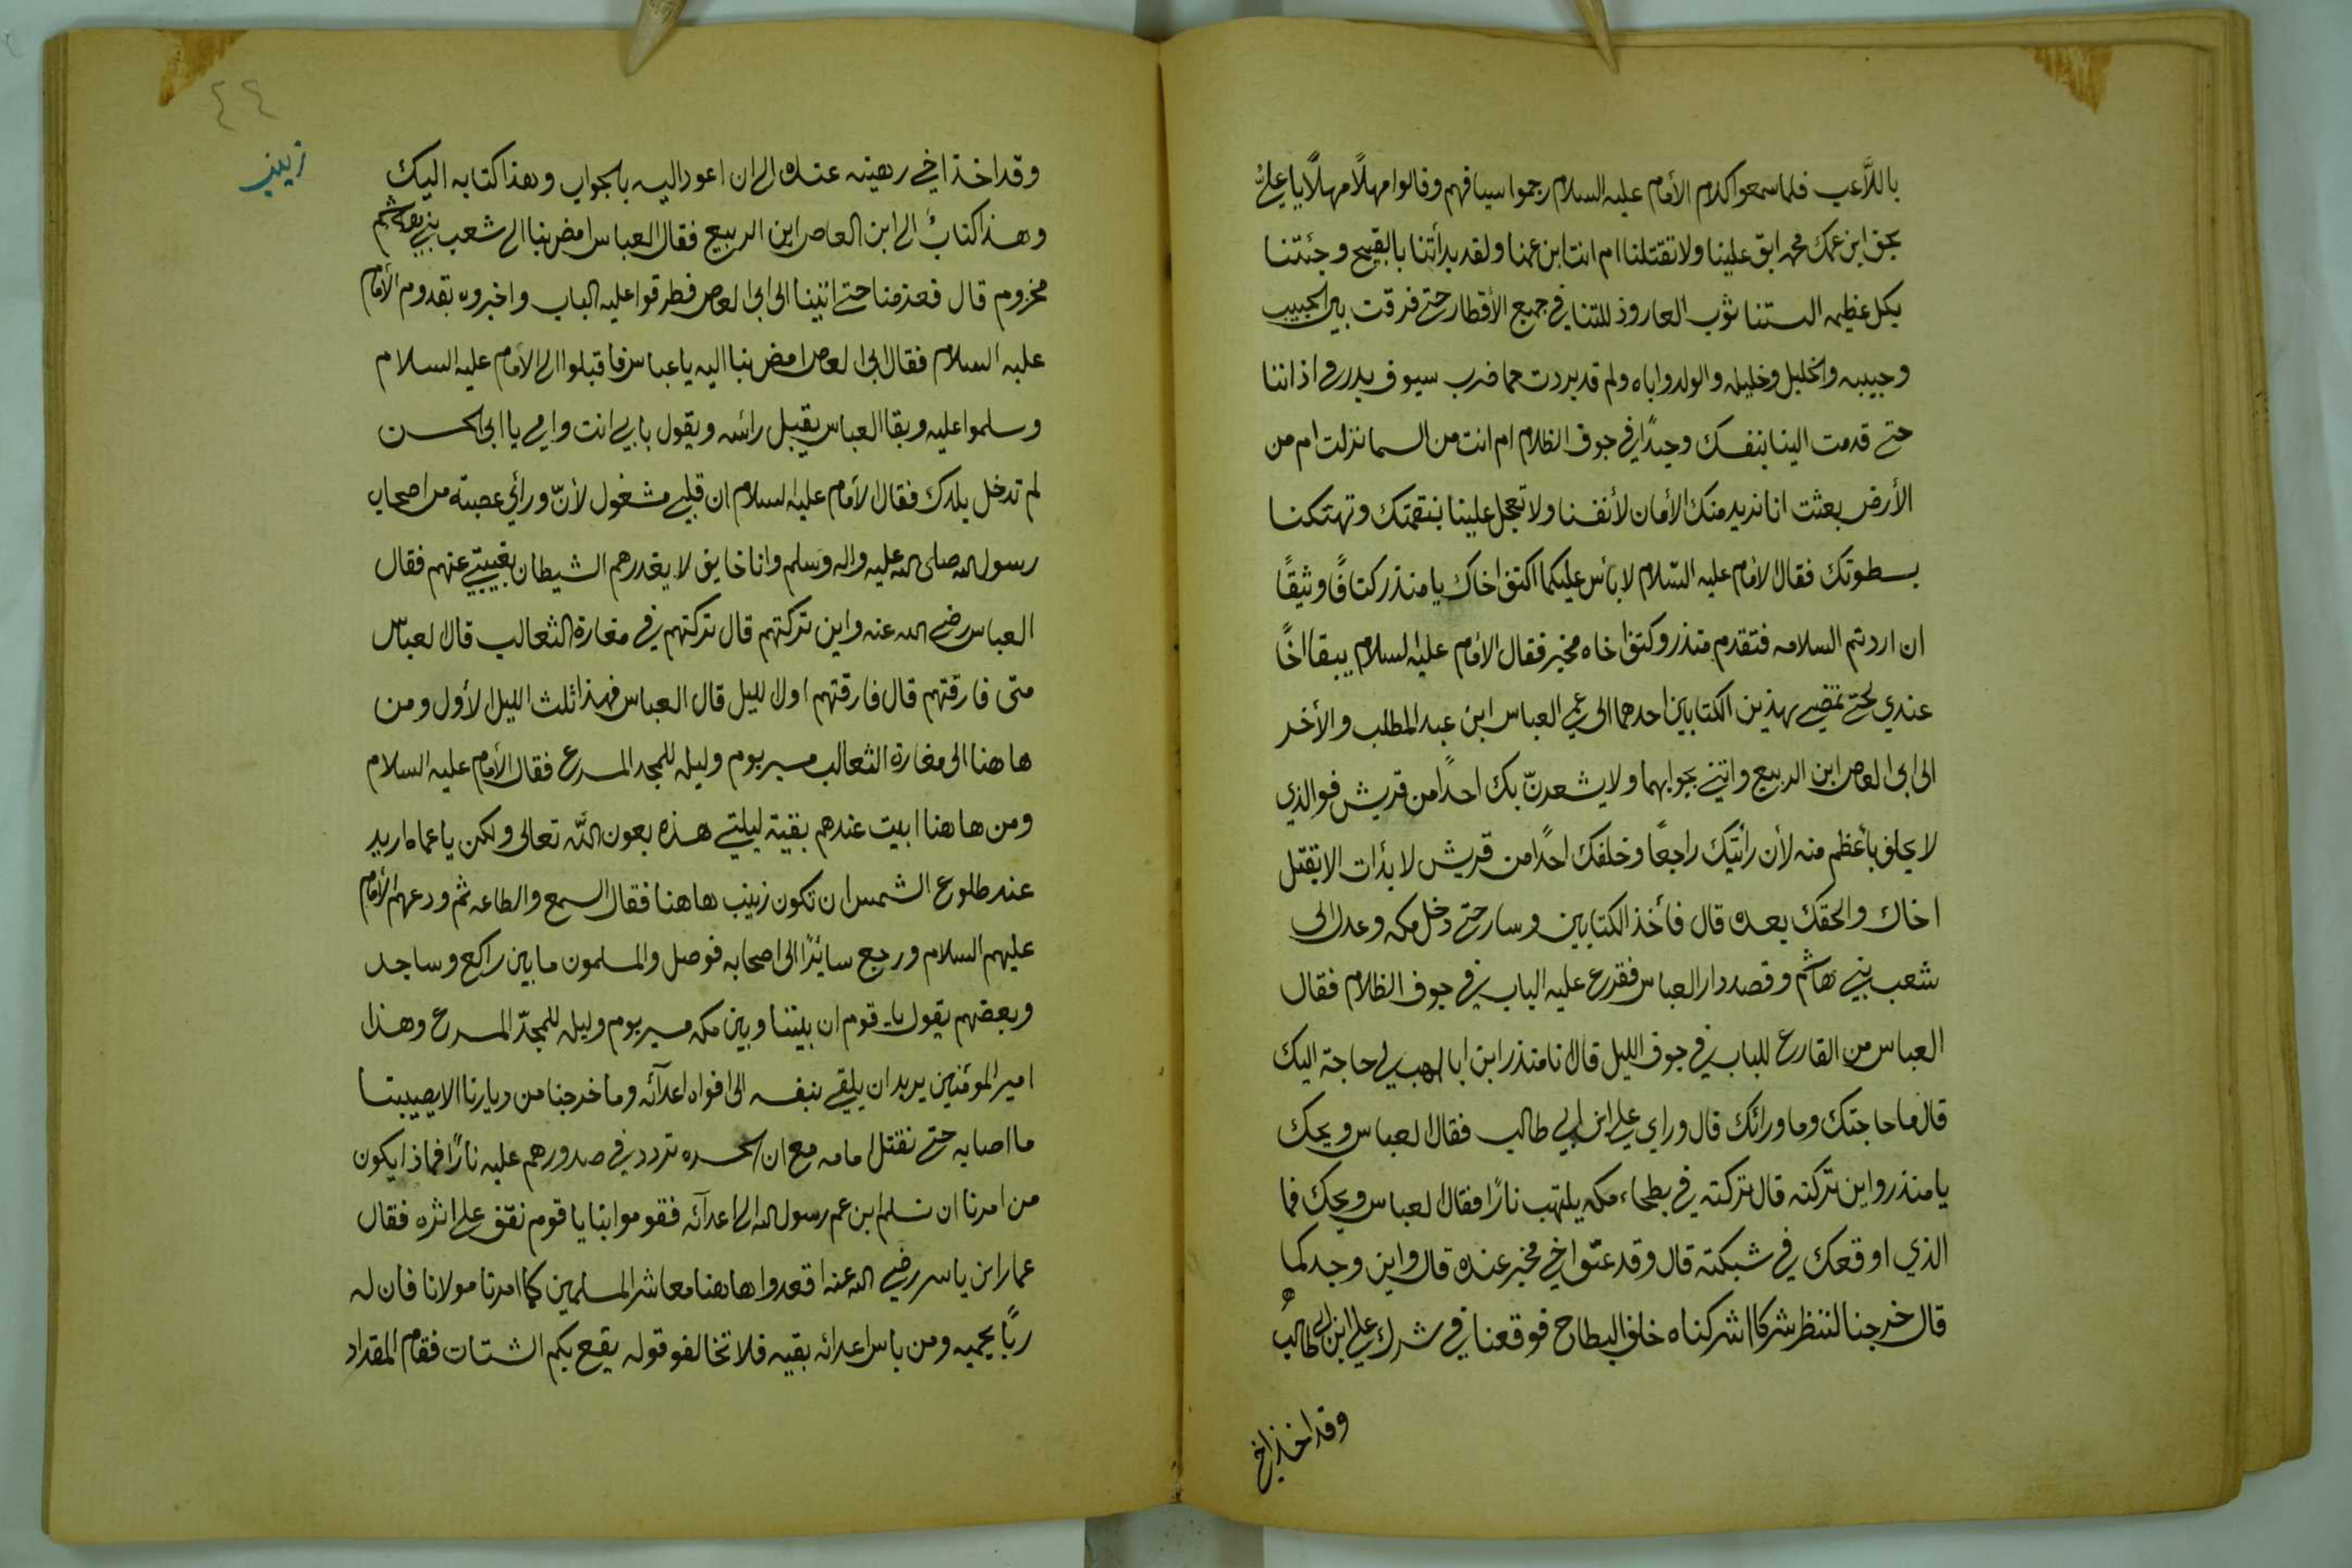 باللاعب فلما سمعوا كلام الأمام عليه السلام رجموا سيافهم وقالوا مهلاً مهلاً يا علي
بحق ابن عمك محمد ابق علينا ولا تقتلنا ام انت ابن عمنا ولقد بدأتنا بالقبيح وجئتنا
بكل عظيمه البستنا ثوب العار وذللتنا في جميع الأقطار حتى فرقت بين الحبيب
وحبيبه والخليل وخليله والولد واباه ولم قد بردت حما ضرب سيوف بدر في اذاننا
حتى قدمت الينا بنفسك وحيدًا في جوف الظلام ام انت من السما نزلت ام من
الأرض بعثت انا نريد منك الأمان لأنفسنا ولا تعجل علينا بنقمتك وتهتكنا
بسطوتك فقال الأمام عليه السّلام لا بأس عليكما اكتف اخاك يا منذر كتافًا وثيقًا
ان اردتم السلامه فتقدم منذر وكتف اخاه مخير فقال الأمام عليه السلام يبقا اخًا
عندي لحتى تمضي بهذين الكتابين احدهما الى عمي العباس ابن عبد المطلب والأخر
الى ابي العاص ابن الربيع واتيني بجوابهما ولا يشعرنّ بك احدًا من قريش فوالذي
لا يحلف بأعظم منه لأن رأيتك راجعًا وخلفك احدًا من قريش لا بدأت الا بقتل
اخاك والحقك بعده قال فأخذ الكتابين وسار حتى دخل مكه وعدل الى
شعب بني هاشم وقصد دار العباس فقرع عليه الباب في جوف الظلام فقال
العباس من القارع للباب في جوف الليل قال انا منذر ابن ابا لهب لي حاجة اليك
قال ما حاجتك وما ورائك قال وراي علي ابن ابي طالب فقال العباس ويحك
يا منذر واين تركته قال تركته في بطحاء مكه يلتهب نارًا فقال العباس ويحك فما
الذي اوقعك في شبكته قال وقد عتّق اخي مخير عنده قال واين وجدكما
قال خرجنا لننظر شركا اشركناه خلف البطاح فوقعنا في شرك علي ابن ابي طالب
وقد اخذ اخ
٤٤
زينب
وقد اخذ اخي رهينه عنده الى ان اعود اليه بالجواب وهذا كتابه اليك
وهذا كتابٌ الى ابن العاص ابن الربيع فقال العباس امض بنا الى شعب بني
مخزوم قال فعزمنا حتى اتينا الى ابي العاص فطرقوا عليه الباب واخبروه بقدوم الأمام
عليه السلام فقال ابي العاص امض بنا اليه يا عباس فاقبلوا الى الأمام عليه السلام
وسلموا عليه وبقا العباس يقبل رأسه ويقول بابي انت وامي يا ابي الحسن
لم تدخل بلدك فقال الأمام عليه السلام ان قلبي مشغول لأنّ ورائي عصبته من اصحاب
رسول الله صلى الله عليه واله وسلم وانا خايف لا يغدرهم الشيطان بغيبتي عنهم فقال
العباس رضي الله عنه واين تركتهم قال تركتهم في مغارة الثعالب قال العباس
متى فارقتهم قال فارقتهم اول الليل قال العباس فهذا ثلث الليل الأول ومن
هاهنا الى مغارة الثعالب مسير يوم وليله للمجد المسرع فقال الأمام عليه السلام
ومن هاهنا ابيت عندهم بقية ليلتي هذه بعون اللّه تعالى ولكن يا عماه اريد
عند طلوع الشمس ان تكون زينب هاهنا فقال السمع والطاعه ثم ودعهم الأمام
عليهم السلام ورجع سايرًا الى اصحابه فوصل والمسلمون مابين راكع وساجد
وبعضهم يقول يا قوم ان بيننا وبين مكه مسير يوم وليله للمجدّ المسرع وهذا
امير المؤمنين يريد ان يلقي بنفسه الى افواه اعدآئه وما خرجنا من ديارنا الا يصيبنا
ما اصابه حتى نقتل امامه مع ان الحسره تردد في صدورهم عليه نارًا فماذا يكون
من امرنا ان نسلم ابن عم رسول الله الى اعدآئه فقوموا بنا يا قوم نقف على اثره فقال
عمار ابن ياسر رضي الله عنه اقعدوا هاهنا معاشر المسلمين كما امرنا مولانا فان له
ربًا يحميه ومن باس اعدائه يقيه فلا تخالفو قوله يقع بكم الشتات فقام المقداد